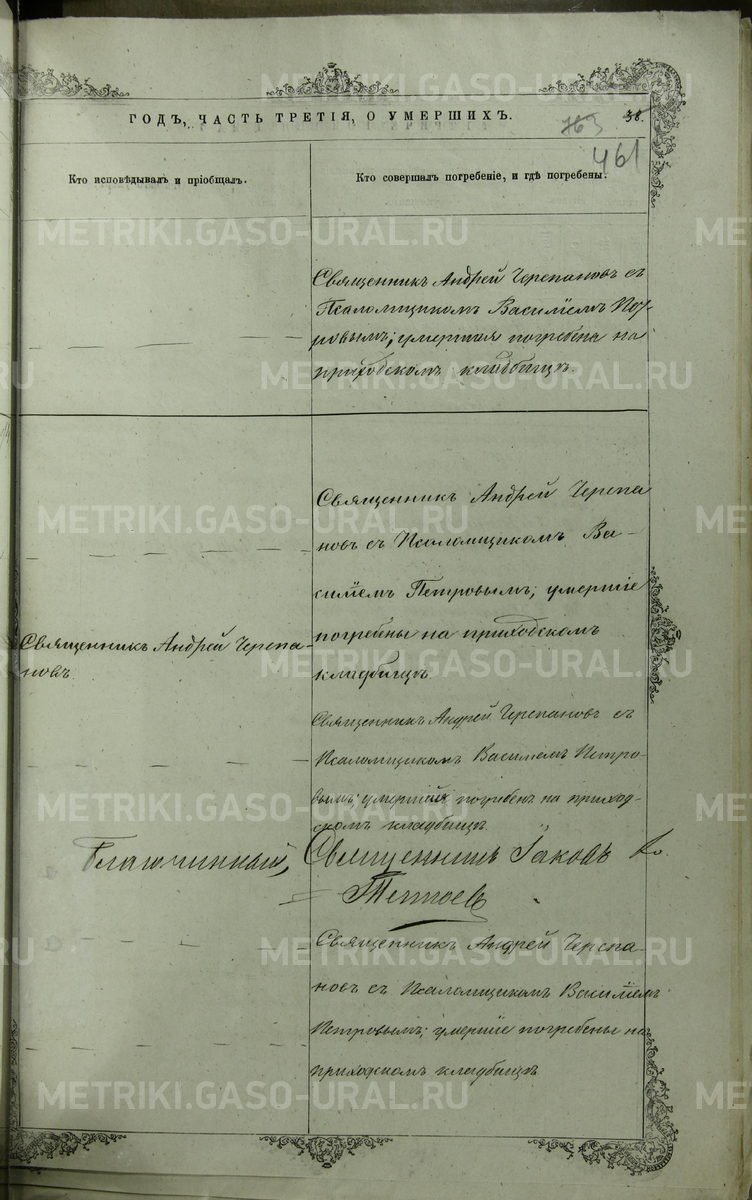 ГОДЪ, ЧАСТЬ ТРЕТІЯ, О УМЕРШИХЪ.
38.
461
Кто исповѣдывалъ и пріобщалъ.
Кто совершалъ погребеніе, и гдѣ погребены.
Священникъ Андрей Черепановъ съ
Псаломщикомъ Василіемъ Пет-
ровымъ; умершая погребена на
приходскомъ кладбищѣ.
Священникъ Андрей Черепа
новъ съ Псаломщикомъ Ва-
силіемъ Петровымъ; умершіе
погребены на приходскомъ
кладбищѣ
Священникъ Андрей Черепа-
новъ.
Священникъ Андрей Черепановъ съ
Псаломщикомъ Василіемъ Петро-
вымъ; умершій погребенъ на приход-
скомъ кладбищѣ
Благочинный, Священникъ Іаковъ
Священникъ Андрей Черепа-
новъ съ Псаломщикомъ Василіемъ
Петровымъ; умершіе погребены на
приходскомъ кладбищѣ
METRIKI.GASO-URAL.RU